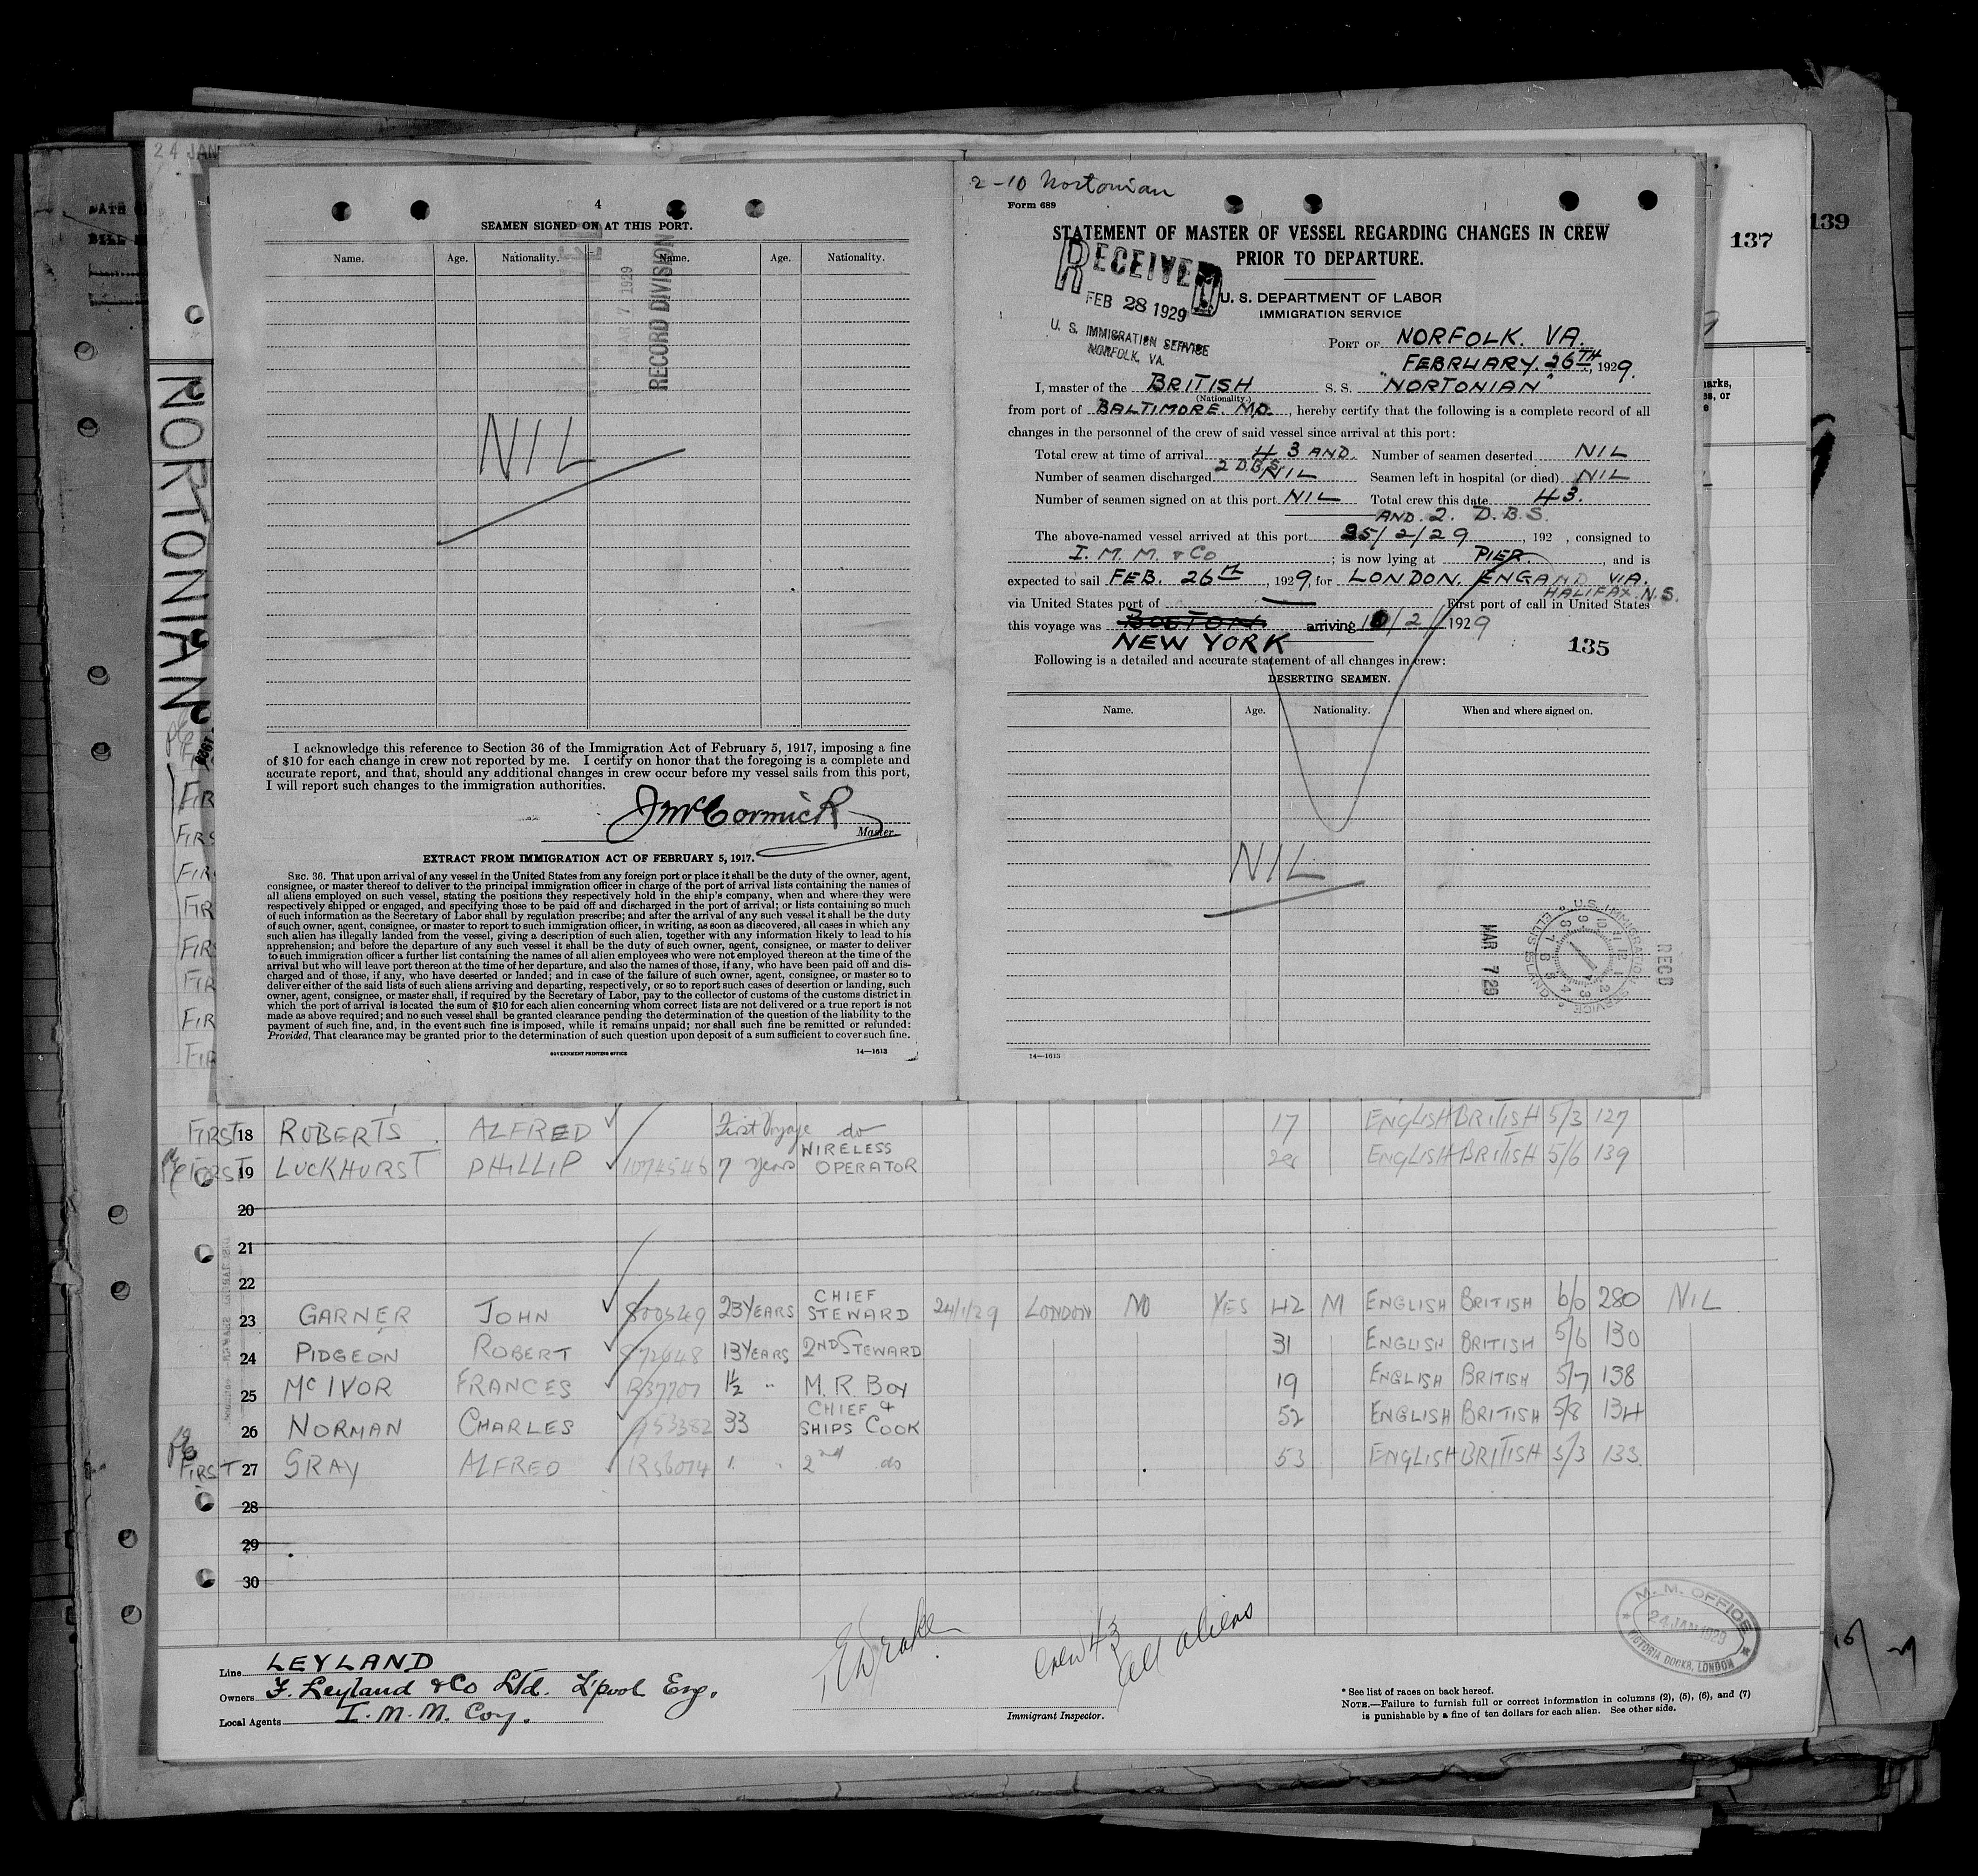 24 JAN
139
137
NORTONIAN
4
SEAMEN SIGNED ON AT THIS PORT.
Name. Age. Nationality. Name. Age. Nationality.
MAR 7 1929
RECORD DIVISION
NIL
I acknowledge this reference to Section 36 of the Immigration Act of February 5, 1917, imposing a fine
of $10 for each change in crew not reported by me. I certify on honor that the foregoing is a complete and
accurate report, and that, should any additional changes in crew occur before my vessel sails from this port,
I will report such changes to the immigration authorities.
J McCormick
Master.
EXTRACT FROM IMMIGRATION ACT OF FEBRUARY 5, 1917.
SEC. 36. That upon arrival of any vessel in the United States from any foreign port or place it shall be the duty of the owner, agent,
consignee, or master thereof to deliver to the principal immigration officer in charge of the port of arrival lists containing the names of
all aliens employed on such vessel, stating the positions they respectively hold in the ship's company, when and where they were
respectively shipped or engaged, and specifying those to be paid off and discharged in the port of arrival; or lists containing so much
of such information as the Secretary of Labor shall by regulation prescribe; and after the arrival of any such vessel it shall be the duty
of such owner, agent, consignee, or master to report to such immigration officer, in writing, as soon as discovered, all cases in which any
such alien has illegally landed from the vessel, giving a description of such alien, together with any information likely to lead to his
apprehension; and before the departure of any such vessel it shall be the duty of such owner, agent, consignee, or master to deliver
to such immigration officer a further list containing the names of all alien employees who were not employed thereon at the time of the
arrival but who will leave port thereon at the time of her departure, and also the names of those, if any, who have been paid off and dis-
charged and of those, if any, who have deserted or landed; and in case of the failure of such owner, agent, consignee, or master so to
deliver either of the said lists of such aliens arriving and departing, respectively, or so to report such cases of desertion or landing, such
owner, agent, consignee, or master shall, if required by the Secretary of Labor, pay to the collector of customs of the customs district in
which the port of arrival is located the sum of $10 for each alien concerning whom correct lists are not delivered or a true report is not
made as above required; and no such vessel shall be granted clearance pending the determination of the question of the liability to the
payment of such fine, and, in the event such fine is imposed, while it remains unpaid; nor shall such fine be remitted or refunded:
Provided, That clearance may be granted prior to the determination of such question upon deposit of a sum sufficient to cover such fine.
GOVERNMENT PRINTING OFFICE 14—1613
2-10 Nortonian
Form 689
STATEMENT OF MASTER OF VESSEL REGARDING CHANGES IN CREW
PRIOR TO DEPARTURE.
RECEIVED
FEB 28 1929
U. S. IMMIGRATION SERVICE
NORFOLK, VA.
U. S. DEPARTMENT OF LABOR
IMMIGRATION SERVICE
PORT OF NORFOLK. VA.
FEBRUARY. 26TH, 1929.
I, master of the BRITISH S. S. "NORTONIAN"
(Nationality.)
from port of BALTIMORE. MD., hereby certify that the following is a complete record of all
changes in the personnel of the crew of said vessel since arrival at this port:
Total crew at time of arrival 43 AND. Number of seamen deserted NIL
2 D.B.S.
Number of seamen discharged NIL Seamen left in hospital (or died) NIL
Number of seamen signed on at this port NIL Total crew this date 43.
AND. 2. D.B.S.
The above-named vessel arrived at this port 25/2/29, 192 , consigned to
I. M. M. & Co ; is now lying at PIER , and is
expected to sail FEB. 26TH, 1929, for LONDON, ENGAND VIA.
HALIFAX. N.S.
via United States port of First port of call in United States
this voyage was BOSTON arriving 10/2/1929
NEW YORK
135
Following is a detailed and accurate statement of all changes in crew:
DESERTING SEAMEN.
Name. Age. Nationality. When and where signed on.
NIL
MAR 7 '29
U.S. IMMIGRATION SERVICE ELLIS ISLAND
REC'D
14—1613
FIRST 18 ROBERTS ALFRED First Voyage do 17 ENGLISH BRITISH 5/3 127
FIRST 19 LUCKHURST PHILLIP 1074546 7 years WIRELESS OPERATOR 28 ENGLISH BRITISH 5/6 139
20
21
22
23 GARNER JOHN 800549 23 YEARS CHIEF STEWARD 24/1/29 LONDON NO YES 42 M ENGLISH BRITISH 6/0 280 NIL
24 PIDGEON ROBERT 872648 13 YEARS 2ND STEWARD 31 ENGLISH BRITISH 5/6 130
25 Mc IVOR FRANCES R37707 1½ " M. R. BOY 19 ENGLISH BRITISH 5/7 138
26 NORMAN CHARLES 953382 33 CHIEF & SHIPS COOK 52 ENGLISH BRITISH 5/8 134
FIRST 27 GRAY ALFRED R56074 1 " 2nd do 53 ENGLISH BRITISH 5/3 133.
28
29
30
Line LEYLAND
Owners F. Leyland & Co Ltd. L'pool Eng.
Local Agents I. M. M. Coy.
Crew 43
all aliens
Immigrant Inspector.
M. M. OFFICE
24 JAN 1929
VICTORIA DOCKS, LONDON
* See list of races on back hereof.
NOTE.—Failure to furnish full or correct information in columns (2), (5), (6), and (7)
is punishable by a fine of ten dollars for each alien. See other side.